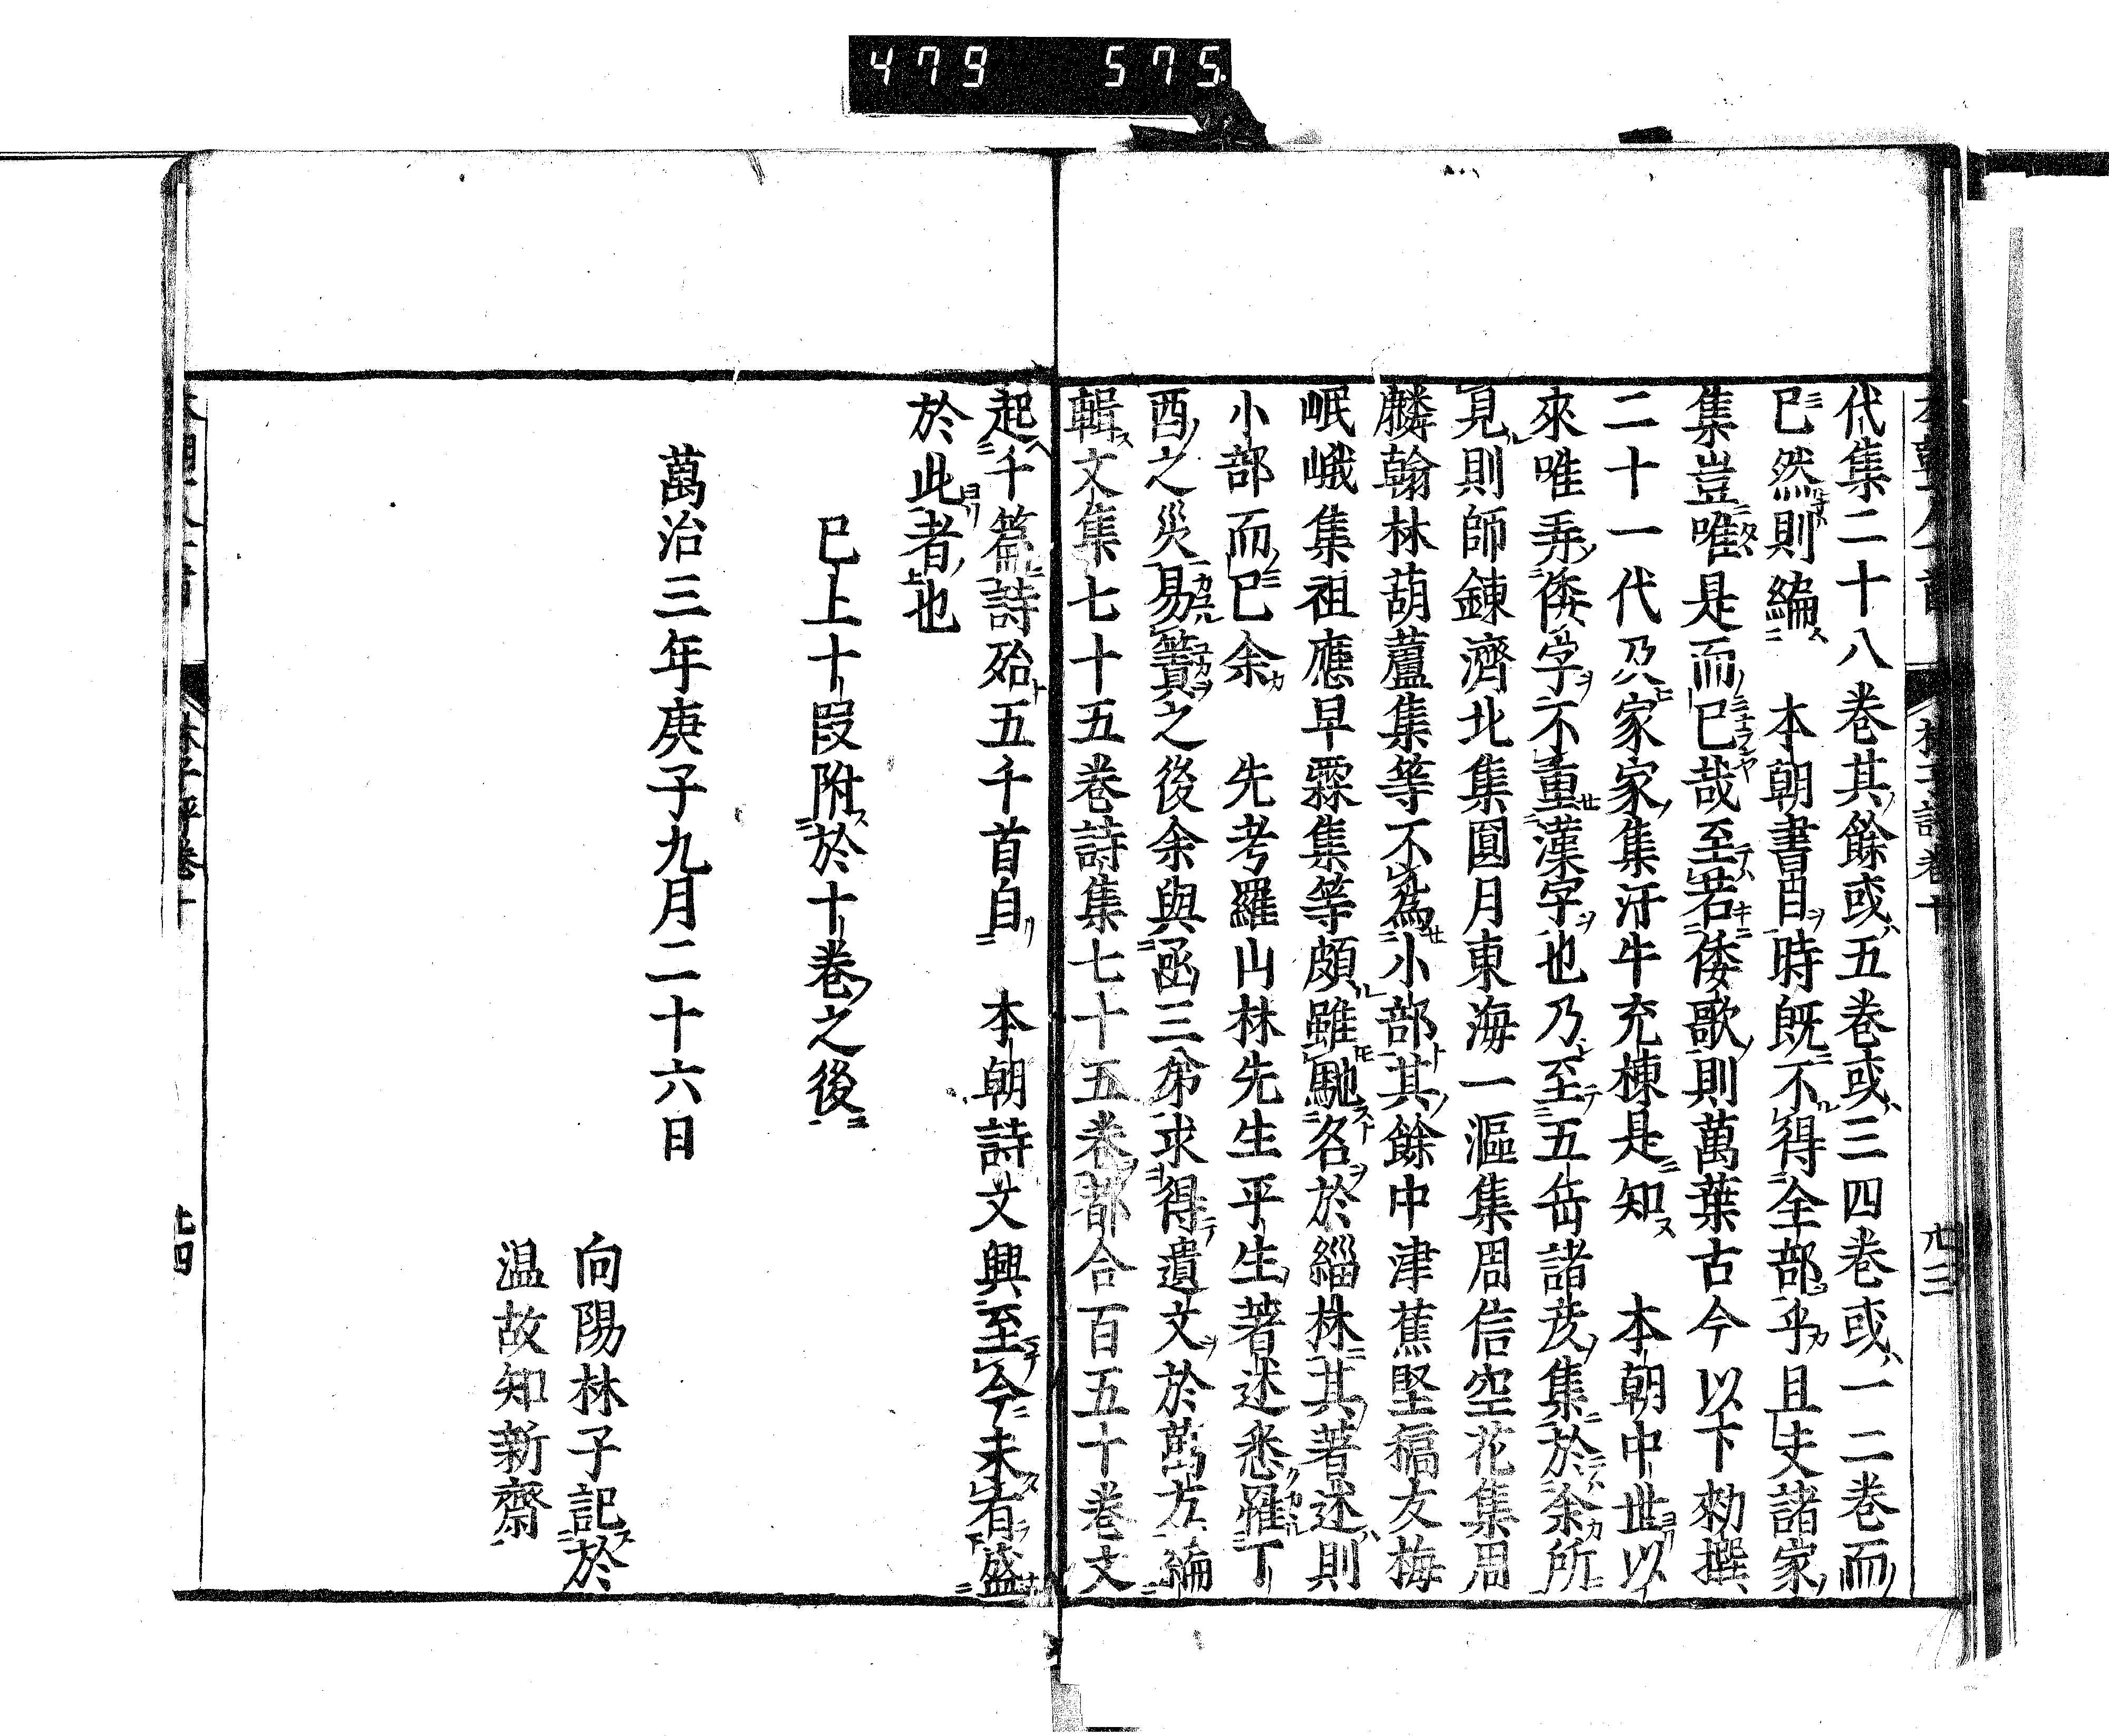 479 575
代集二十八卷其餘或五卷或三四卷或一二卷而
已然則編 本朝書目時既不得全部乎且夫諸家
集豈唯是而已哉至若倭歌則萬葉古今以下勑撰
二十一代及家家集汗牛充棟是知 本朝中世以
來唯弄倭字不重漢字也乃至五岳諸彦集於余所
見則師錬濟北集圓月東海一漚集周信空花集周
麟翰林葫蘆集等不為小部其餘中津蕉堅稿友梅
岷峨集祖應旱霖集等頗雖馳名於緇林其著述則
小部而已余 先考羅山林先生平生著述悉罹丁
酉之災易簀之後余與函三弟求得遺文於萬方編
輯文集七十五卷詩集七十五卷都合百五十卷文
起千篇詩殆五千首自 本朝詩文興至今未有盛
於此者也
已上十段附於十卷之後
萬治三年庚子九月二十六日
向陽林子記於
温故知新齋
林子評卷十
廿四